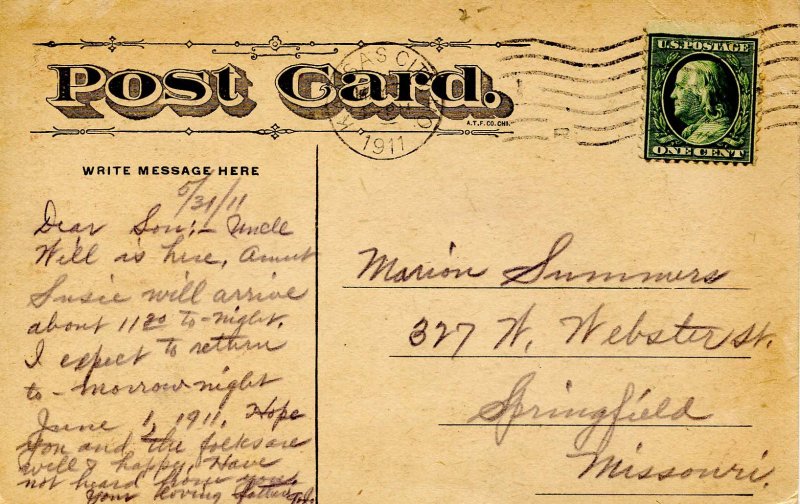 Post Card.
A.T.F. CO. CHS.
KANSAS CITY
1911
U.S. POSTAGE
ONE CENT
WRITE MESSAGE HERE
5/31/11
Dear Son:- Uncle
Will is here, Aunt
Susie will arrive
about 11 20 to-night.
I expect to return
to-morrow night
June 1, 1911. Hope
you and the folks are
well & happy. Have
not heard from you.
Your loving father
Marion Summers
327 W. Webster St.
Springfield
Missouri.